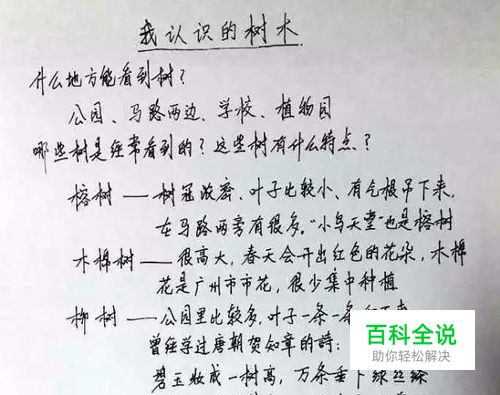 我认识的树木
什么地方能看到树?
公园、马路两边、学校、植物园
哪些树是经常看到的?这些树有什么特点?
榕树——树冠浓密、叶子比较小、有气根吊下来,
在马路两旁有很多。“小鸟天堂”也是榕树
木棉树——很高大,春天会开出红色的花朵,木棉
花是广州市市花,很少集中种植
柳树——公园里比较多,叶子一条一条
曾经学过唐朝贺知章的詩:
碧玉妆成一树高,万条垂下绿丝绦
百科全说
助你轻松解决